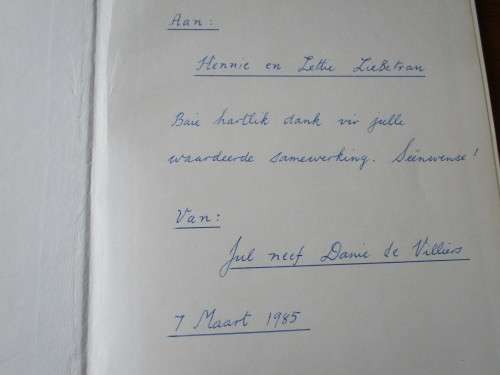 Aan:
Hennie en Lettie Liebetrau
Baie hartlik dank vir julle
waardeerde samewerking. Seënwense!
Van:
Jul neef Danie de Villiers
7 Maart 1985